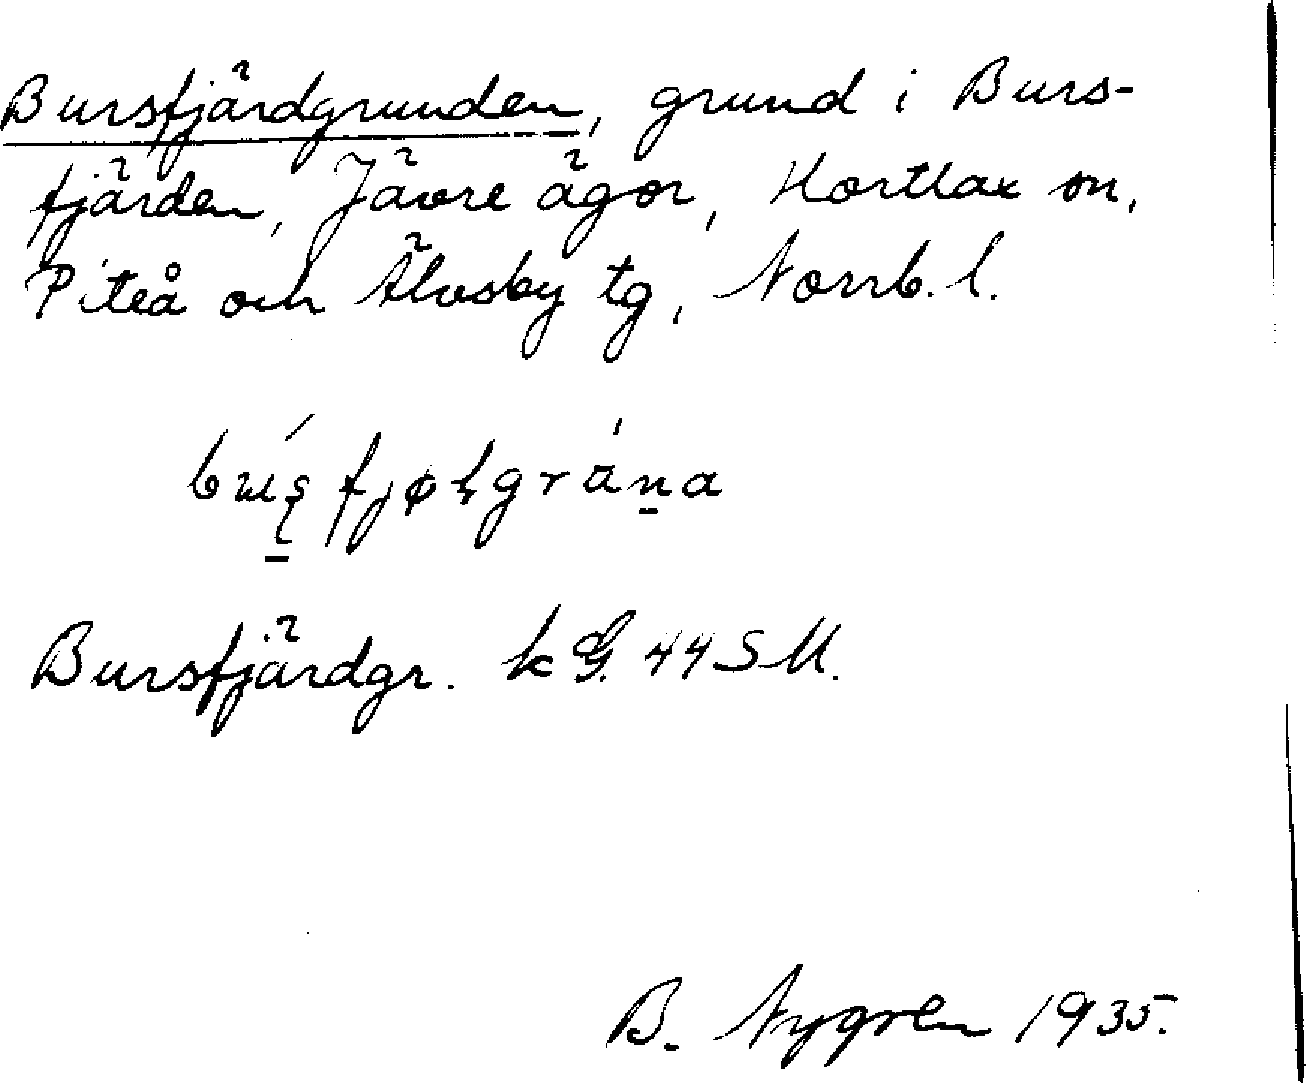 Bursfjärdgrunden, grund i Burs-
fjärden, Jävre ägor, Hortlax sn,
Piteå och Älvsby tg, Norrb. l.
Bursfjärdgr. k G. 44 SM.
B. Nygren 1935.